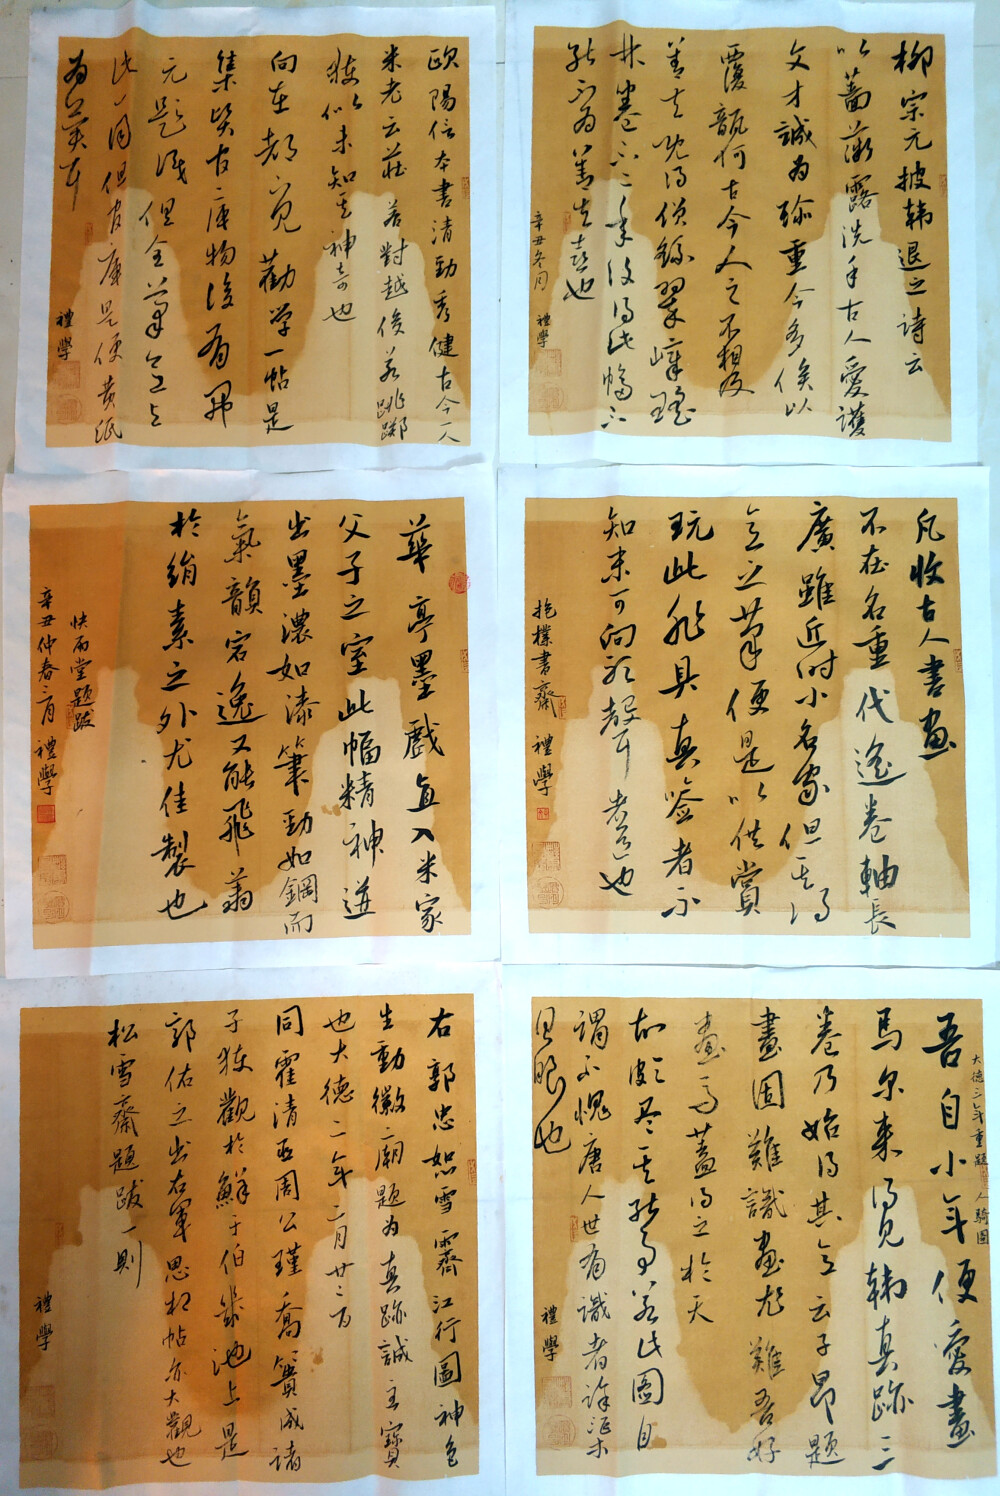 柳宗元披韩退之诗云
以薔薇露洗手古人愛護
文才誠為珍重今多俟以
覆瓿何古今人之不相及
善夫既得僧繇翠嶂瑤
林卷不二年後得此幅亦
能不為善夫喜也
辛丑冬月
禮學
歐陽信本書清勁秀健古今一人
米老云莊若對越俊若跳擲
猶似未知其神奇也
向在都下見勸学一帖是
集賢官庫物後有開
元題識但全筆意与
此一同但官庫是使黄紙
為異耳
禮學
凡收古人書畫
不在名重代遙卷軸長
廣雖近时小名家但其得
意之筆便是以供賞
玩此非具真鉴者不
知未可向聆聲耳者道也
抱樸書齋 禮學
華亭墨戲直入米家
父子之室此幅精神迸
出墨濃如漆筆勁如鋼而
氣韻宕逸又能飛翥
於絹素之外尤佳製也
快雨堂題跋
辛丑仲春二月 禮學
吾自小年便愛畫
大德三年重題人騎图
馬尔来得見韩真跡三
卷乃始得其意云子昂題
畫固難識畫尤難吾好
畫馬蓋得之於天
故頗尽其能事若此图自
謂不愧唐人世有識者許渠
具眼也
禮學
右郭忠恕雪霽江行圖神色
生動徽廟題為真跡誠至寶
也大德二年二月廿三日
同霍清臣周公瑾喬簣成諸
子獲觀於鮮于伯幾池上是
郭佑之出右軍思想帖亦大觀也
松雪齋題跋一則
禮學